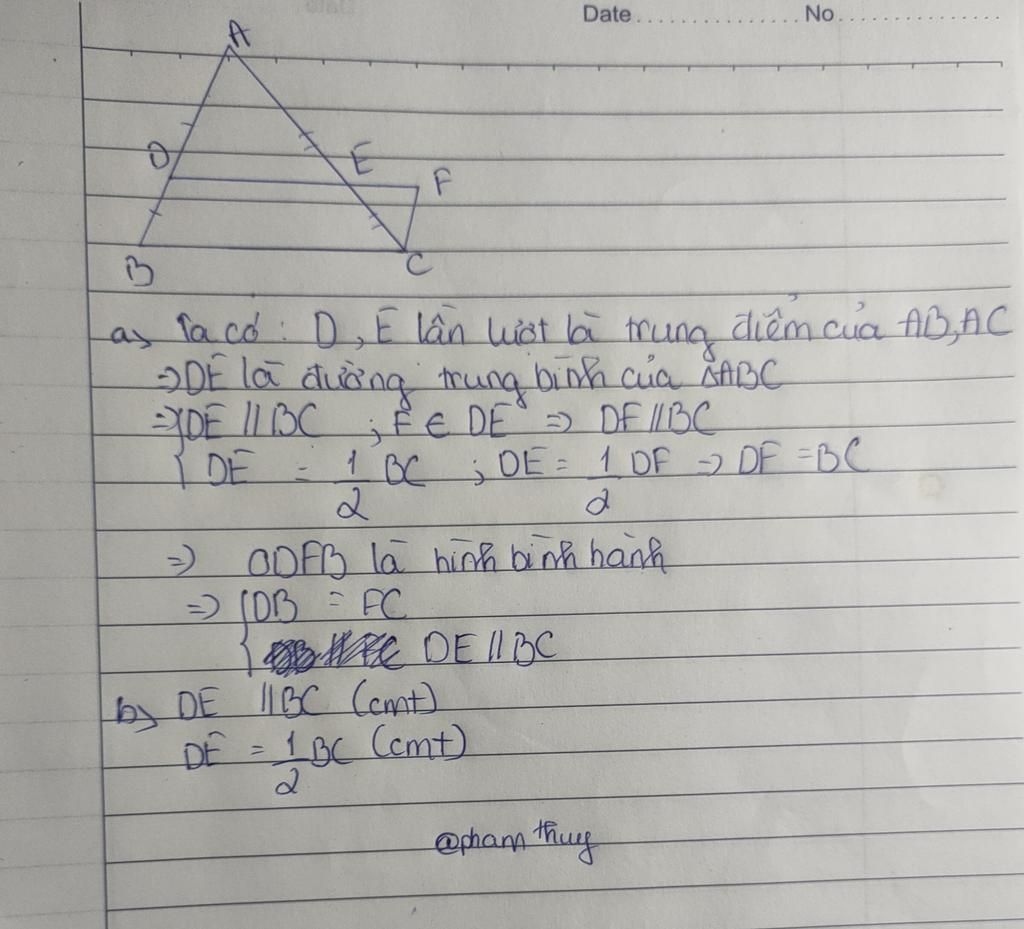 Date.................No.................
A
D E F
B C
a, Ta có : D, E lần lượt là trung điểm của AB, AC
=> DE là đường trung bình của ΔABC
=> { DE // BC ; F ∈ DE => DF // BC
{ DE = 1/2 BC ; DE = 1/2 DF => DF = BC
=> CDFB là hình bình hành
=> { DB = FC
{ DE // BC
b, DE // BC (cmt)
DE = 1/2 BC (cmt)
@pham thuy